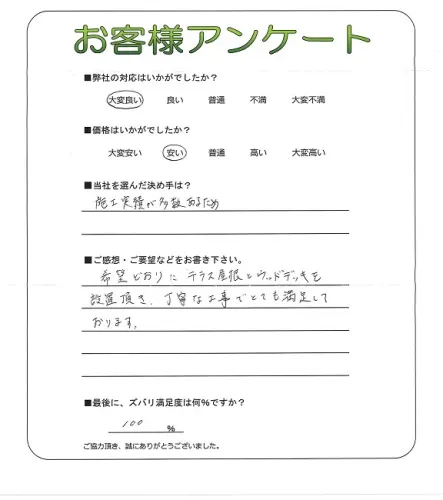 お客様アンケート
■弊社の対応はいかがでしたか？
大変良い 良い 普通 不満 大変不満
■価格はいかがでしたか？
大変安い 安い 普通 高い 大変高い
■当社を選んだ決め手は？
施工実績が多数あるため
■ご感想・ご要望などをお書き下さい。
希望どおりに テラス屋根とウッドデッキを
設置頂き、丁寧な工事でとても満足して
おります。
■最後に、ズバリ満足度は何％ですか？
100 ％
ご協力頂き、誠にありがとうございました。